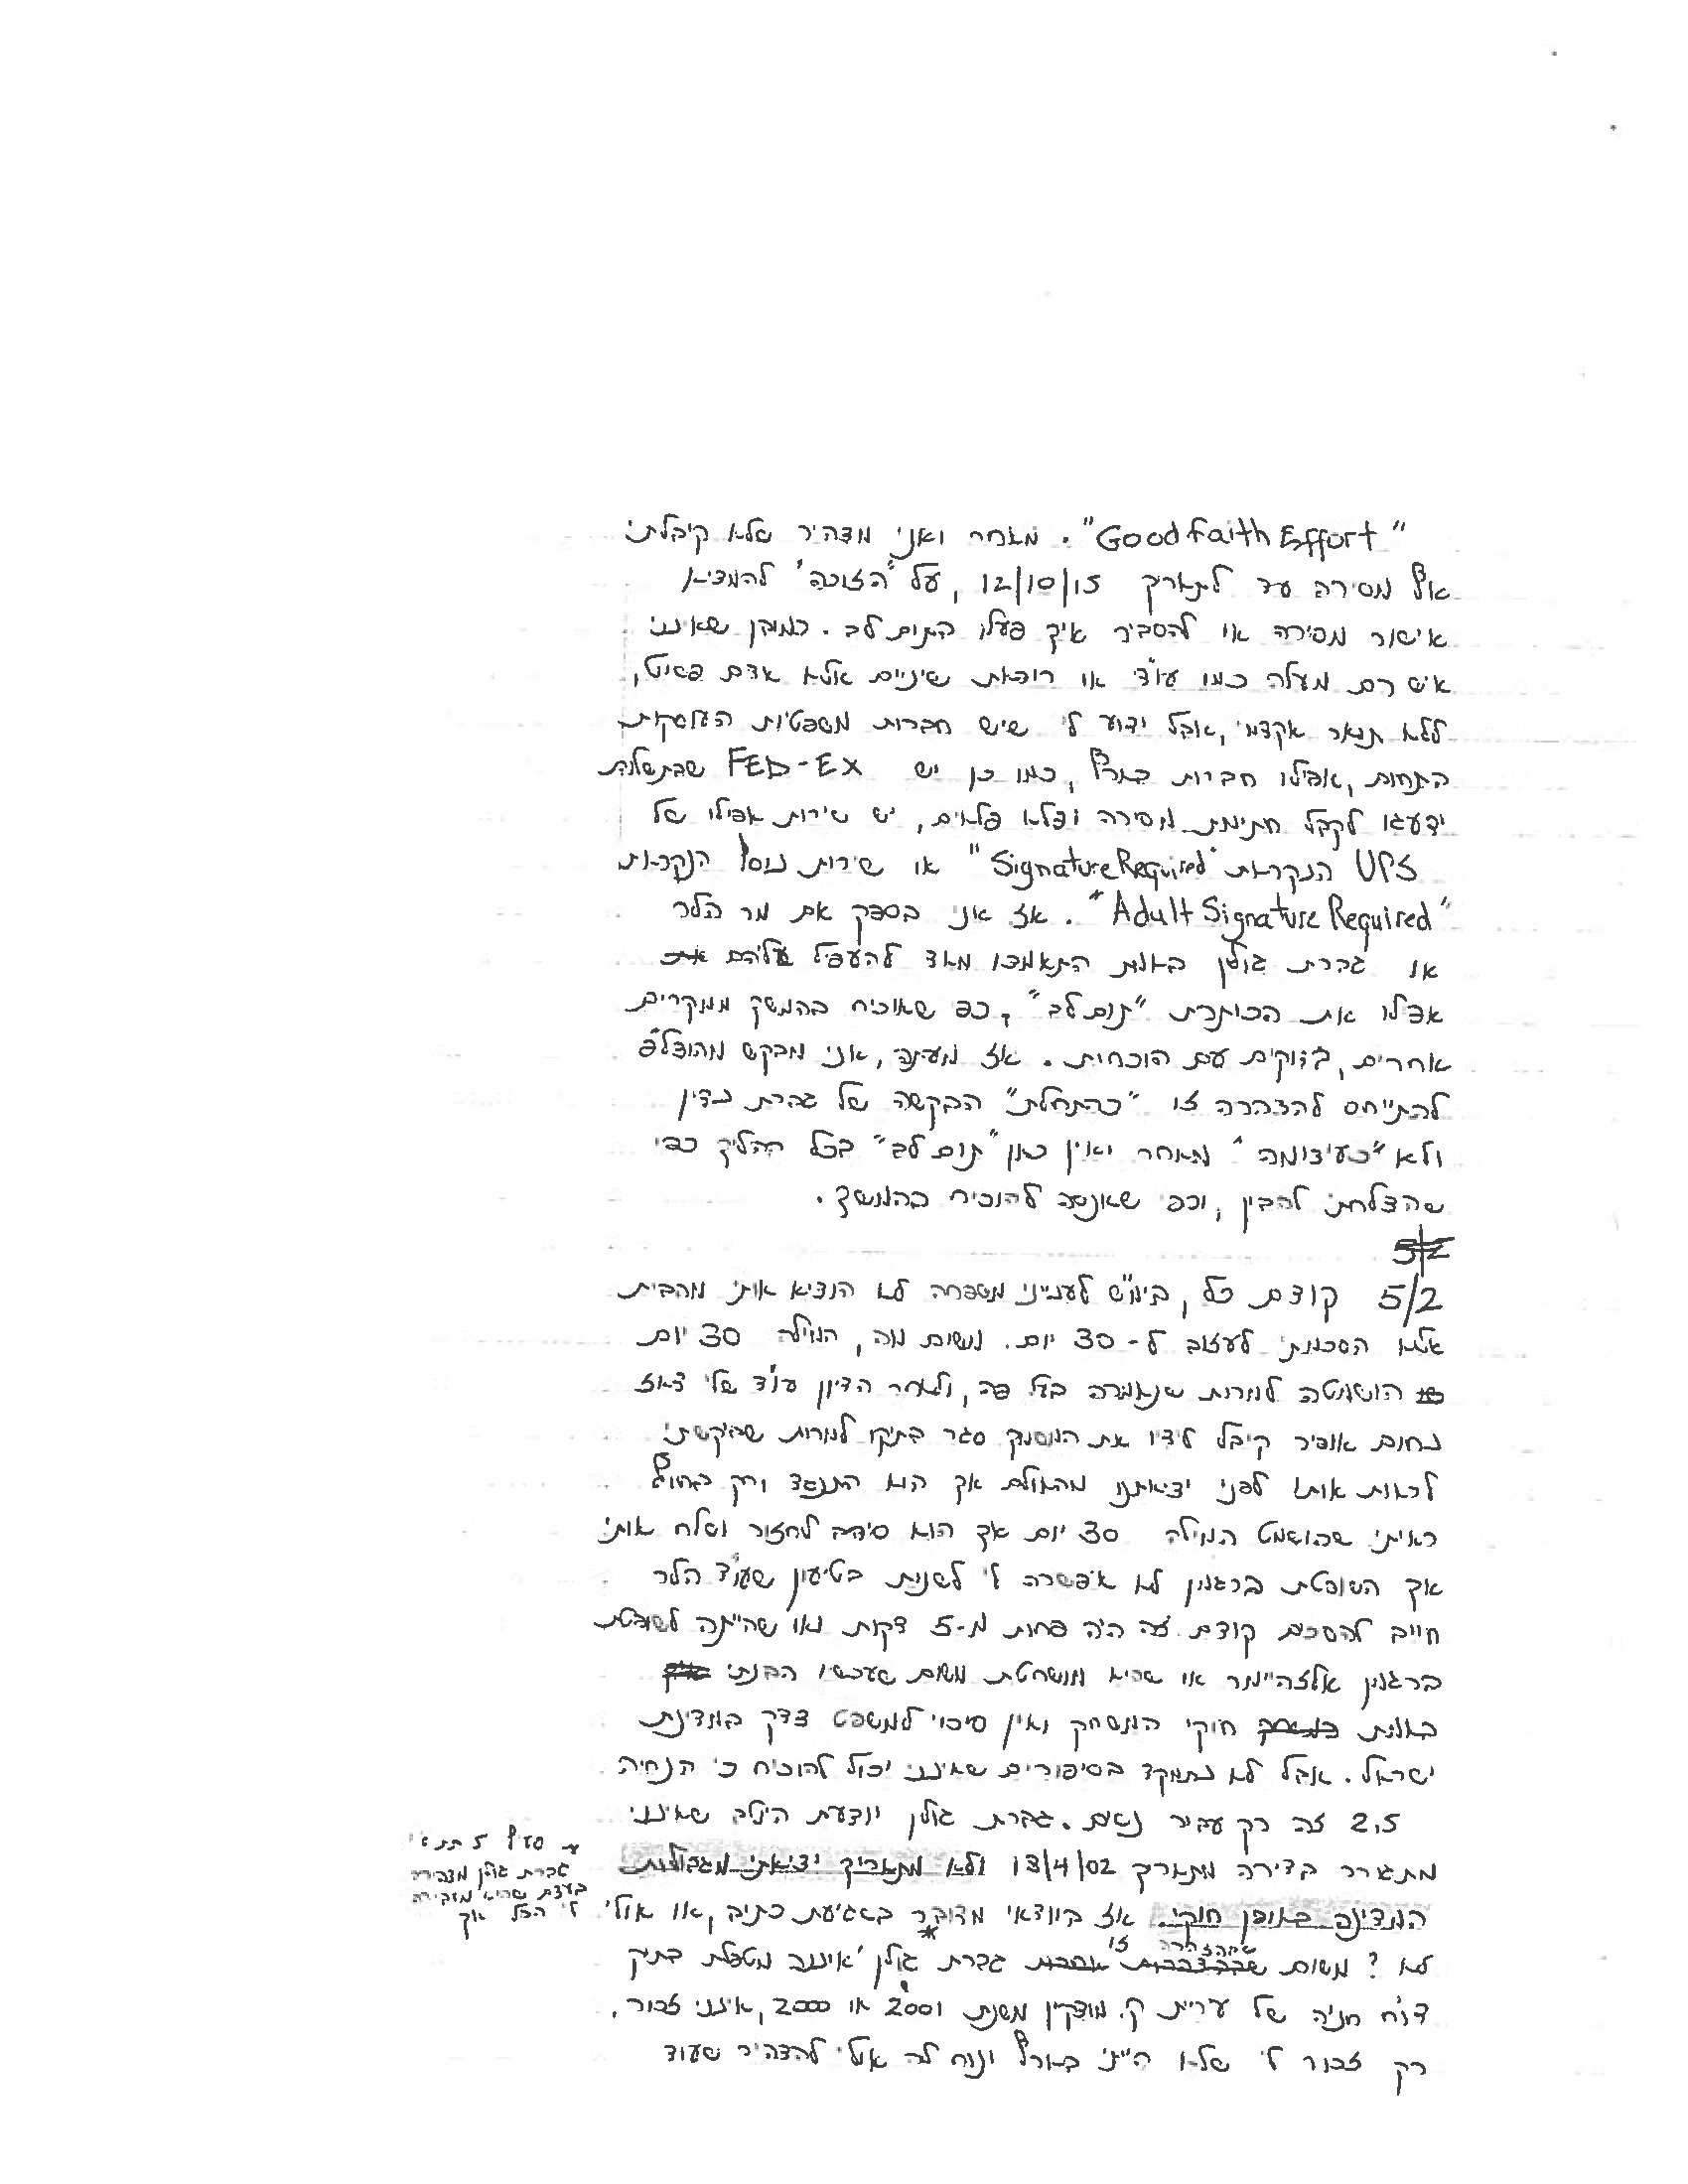 "Good Faith Effort". מאחר ואני מצהיר שלא קיבלתי
אף מסירה עד לתאריך 12/10/15, על "הזוכה" להמציא
אישור מסירה או להסביר איך פעלו התום לב. כמובן שאינני
איש רם מעלה כמו עו"ד או רופאת שיניים אלא אדם פשוט,
ללא תואר אקדמי, אבל ידוע לי שיש חברות משפטיות העוסקות
בתחום, אפילו חברות בארץ, כמו כן יש FED-EX שבתשלום
ידאגו לקבל חתימת מסירה ופלא פלאים, יש שירות אפילו של
UPS הנקראת "Signature Required" או שירות נוסף הנקראת
"Adult Signature Required". אז אני בספק אם מר הלר
או גברת גולן באמת התאמצו מאד להפעיל עליהם את
אפילו את הכותרת "תום לב", כפי שאוכיח בהמשך ממקרים
אחרים, בדוקים עם הוכחות. אז מעתה, אני מבקש מההוצל"פ
להתייחס להצהרה זו "כהתחלת" הבקשה של גברת נדין
ולא "כעיצומה" מאחר ואין כאן "תום לב" בכל תהליך כפי
שהצלחתי להבין, וכפי שאנסה להוכיח בהמשך.
5/2
5/2 קודם כל, בימ"ש לענייני משפחה לא הוציא אותי מהבית
אלא הסכמתי לעזוב ל-30 יום. משום מה, המילה 30 יום
הושמטה למרות שנאמרה בעל פה, ולאחר הדיון עו"ד שלי דאז
נחום אופיר קיבל לידיו את המסמך סגר בתיקו למרות שביקשתי
לראות אותו לפני יציאתנו מהאולם אך הוא התנגד ורק בחוץ
ראיתי שהושמט המילה 30 יום אך הוא סירב לחזור ושלח אותי
אך השופטת ברגמן לא אפשרה לי לשנות בטיעון שעו"ד הלר
חייב להסכים קודם. זה היה פחות מ-5 דקות ואו שהייתה לשופטת
ברגמן אלצהיימר או שהיא מושחתת משום שעכשיו הבנתי
באמת חוקי המשחק ואין סיכוי למשפט צדק במדינת
ישראל. אבל לא נתמקד בסיפורים שאינני יכול להוכיח כי הנחיה
2.5 זה רק עבור נשים. גברת גולן יודעת היטב שאינני
מתגורר בדירה מתאריך 13/4/02 ולא מתאריך יציאתי מגבולות
המדינה באופן חוקי. אז בוודאי מדובר בשגיאת כתיב, או אולי
לא? משום שבהצהרה זו גברת גולן איננה מטפלת בתיק
דו"ח חניה של עריית ק. מוצקין משנת 2001 או 2000, אינני זכור,
רק זכור לי שלא הייתי בארץ ונוח לה אולי להצהיר שעוד
סעיף 5 תת א'
גברת גולן מצהירה
בעצם שהיא מזכירה
לי הכל אך